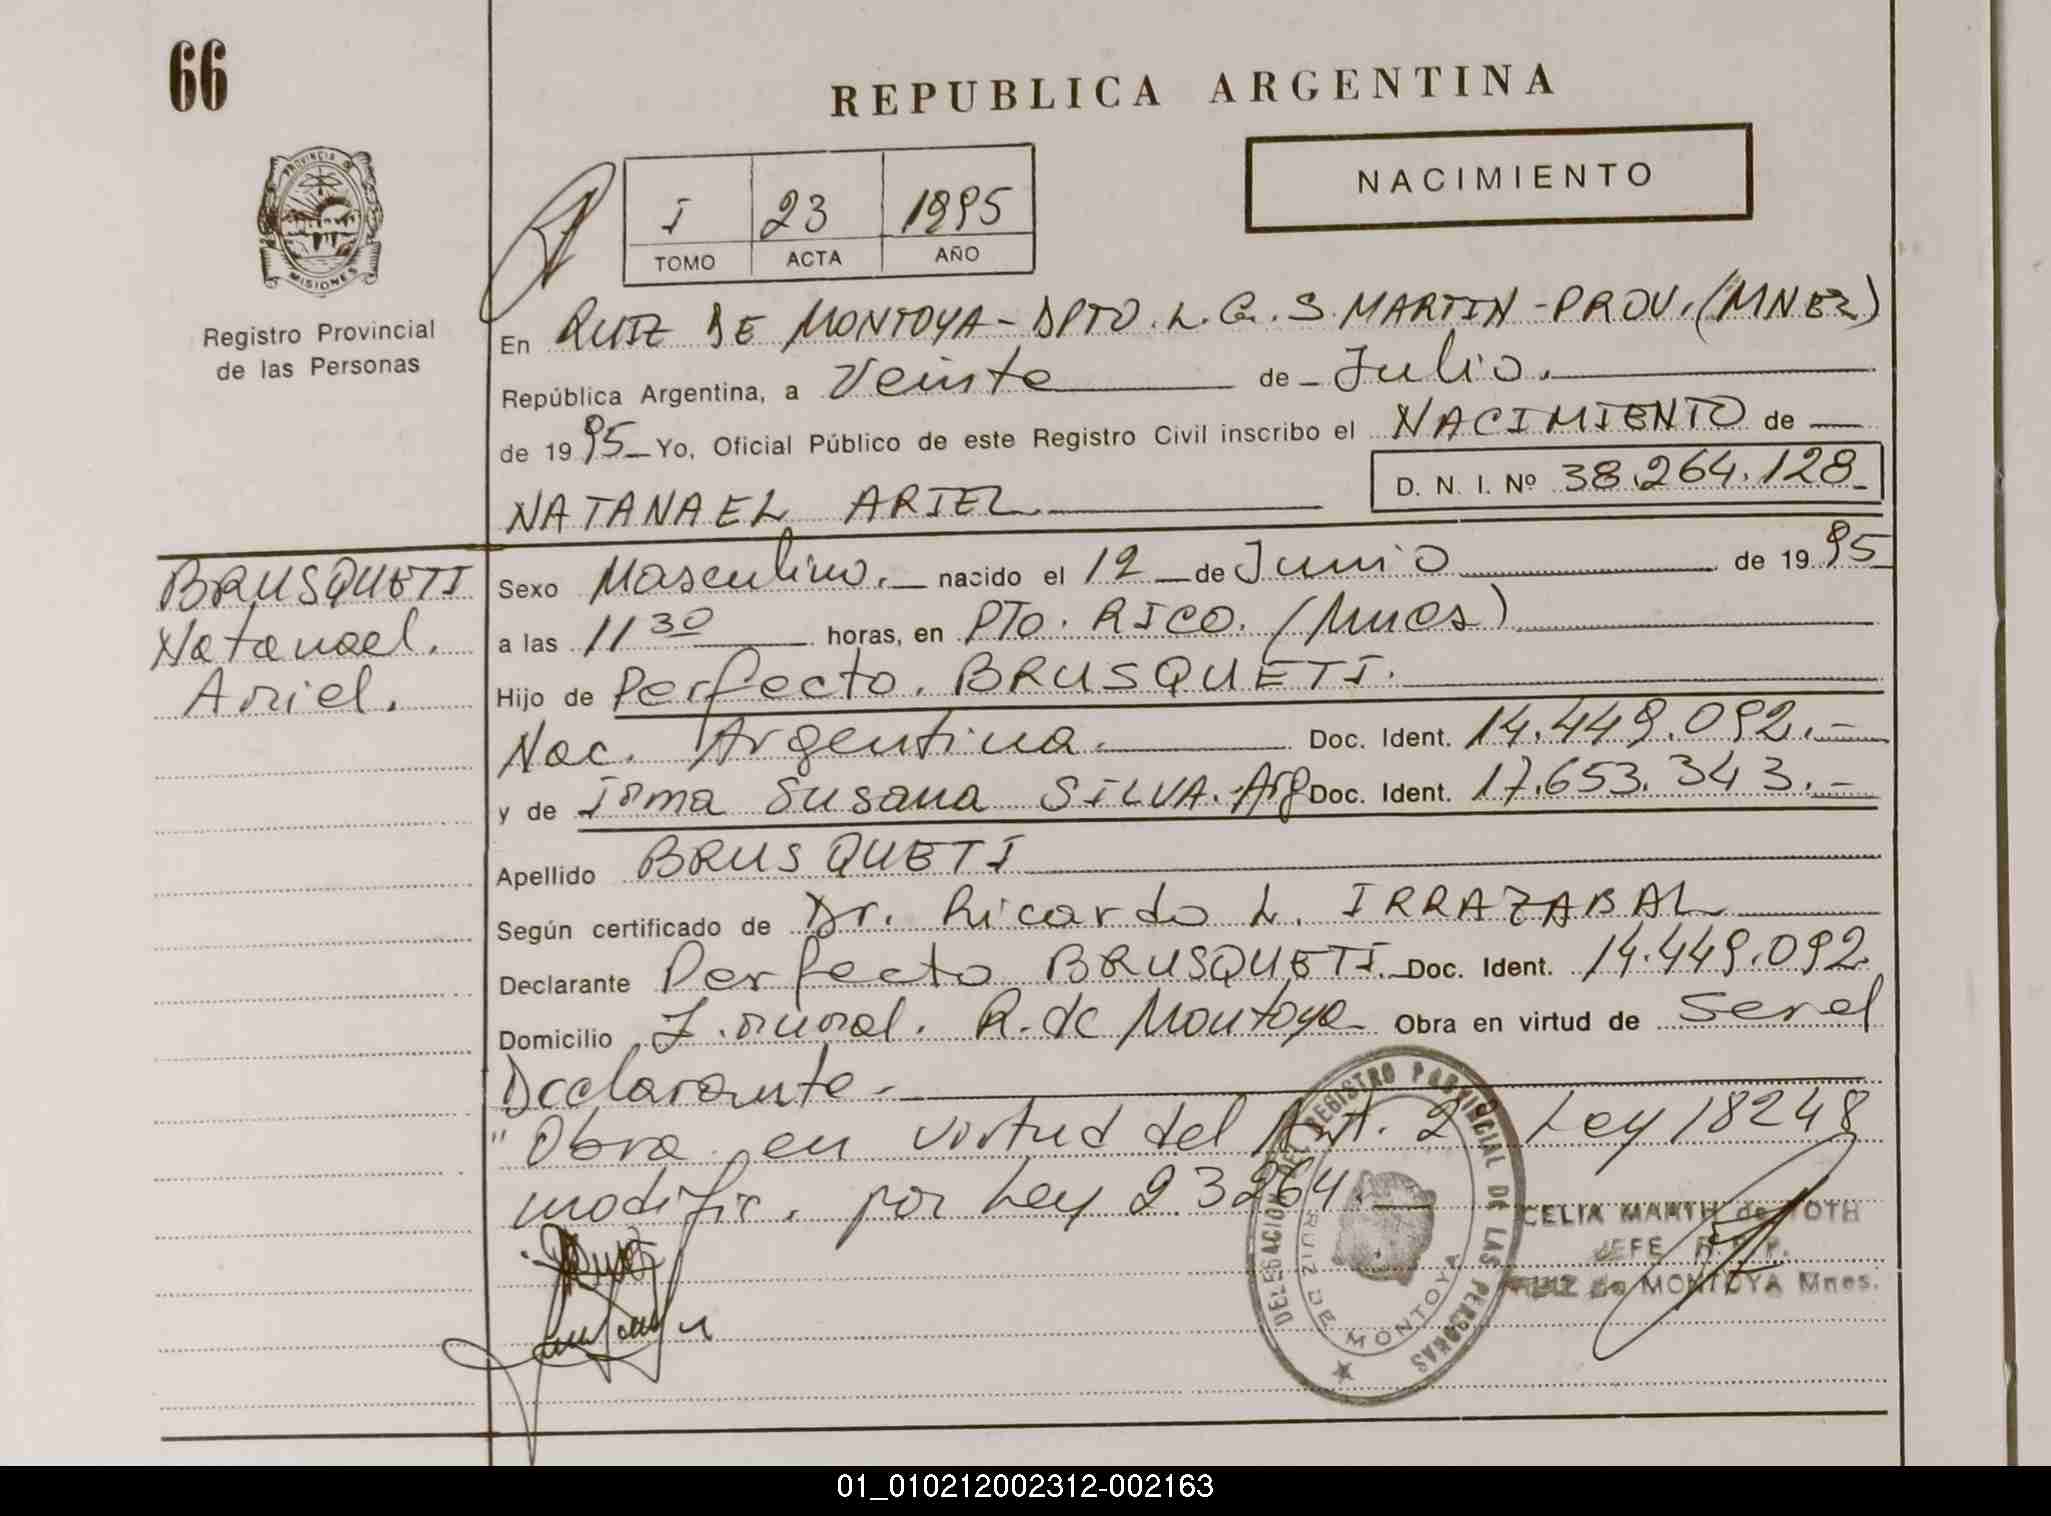 66
REPUBLICA ARGENTINA
NACIMIENTO
I 23 1995
TOMO ACTA AÑO
PROVINCIA DE
MISIONES
Registro Provincial
de las Personas
En RUIZ DE MONTOYA - DPTO. L. G. S. MARTIN - PROV. (MNES)
República Argentina, a Veinte de Julio.
de 1995 Yo, Oficial Público de este Registro Civil inscribo el NACIMIENTO de
D. N. I. Nº 38.264.128
NATANAEL ARIEL
BRUSQUETI
Natanael.
Ariel.
Sexo Masculino. nacido el 12 de Junio de 1995
a las 11 30 horas, en PTO. RICO. (Mnes)
Hijo de Perfecto. BRUSQUETI.
Nac. Argentina. Doc. Ident. 14.449.092.-
y de Irma Susana SILVA. Arg Doc. Ident. 17.653.343.-
Apellido BRUSQUETI
Según certificado de Dr. Ricardo L. IRRAZABAL
Declarante Perfecto BRUSQUETI. Doc. Ident. 14.449.092.
Domicilio Z. rural. R. de Montoya Obra en virtud de Ser el
Declarante -
"Obra en virtud del Art. 2º Ley 18248
modific. por Ley 23264.
DELEGACION DEL REGISTRO PROVINCIAL DE LAS PERSONAS
RUIZ DE MONTOYA
CELIA MARTH de TOTH
JEFE R.P.P.
RUIZ de MONTOYA Mnes.
01_010212002312-002163